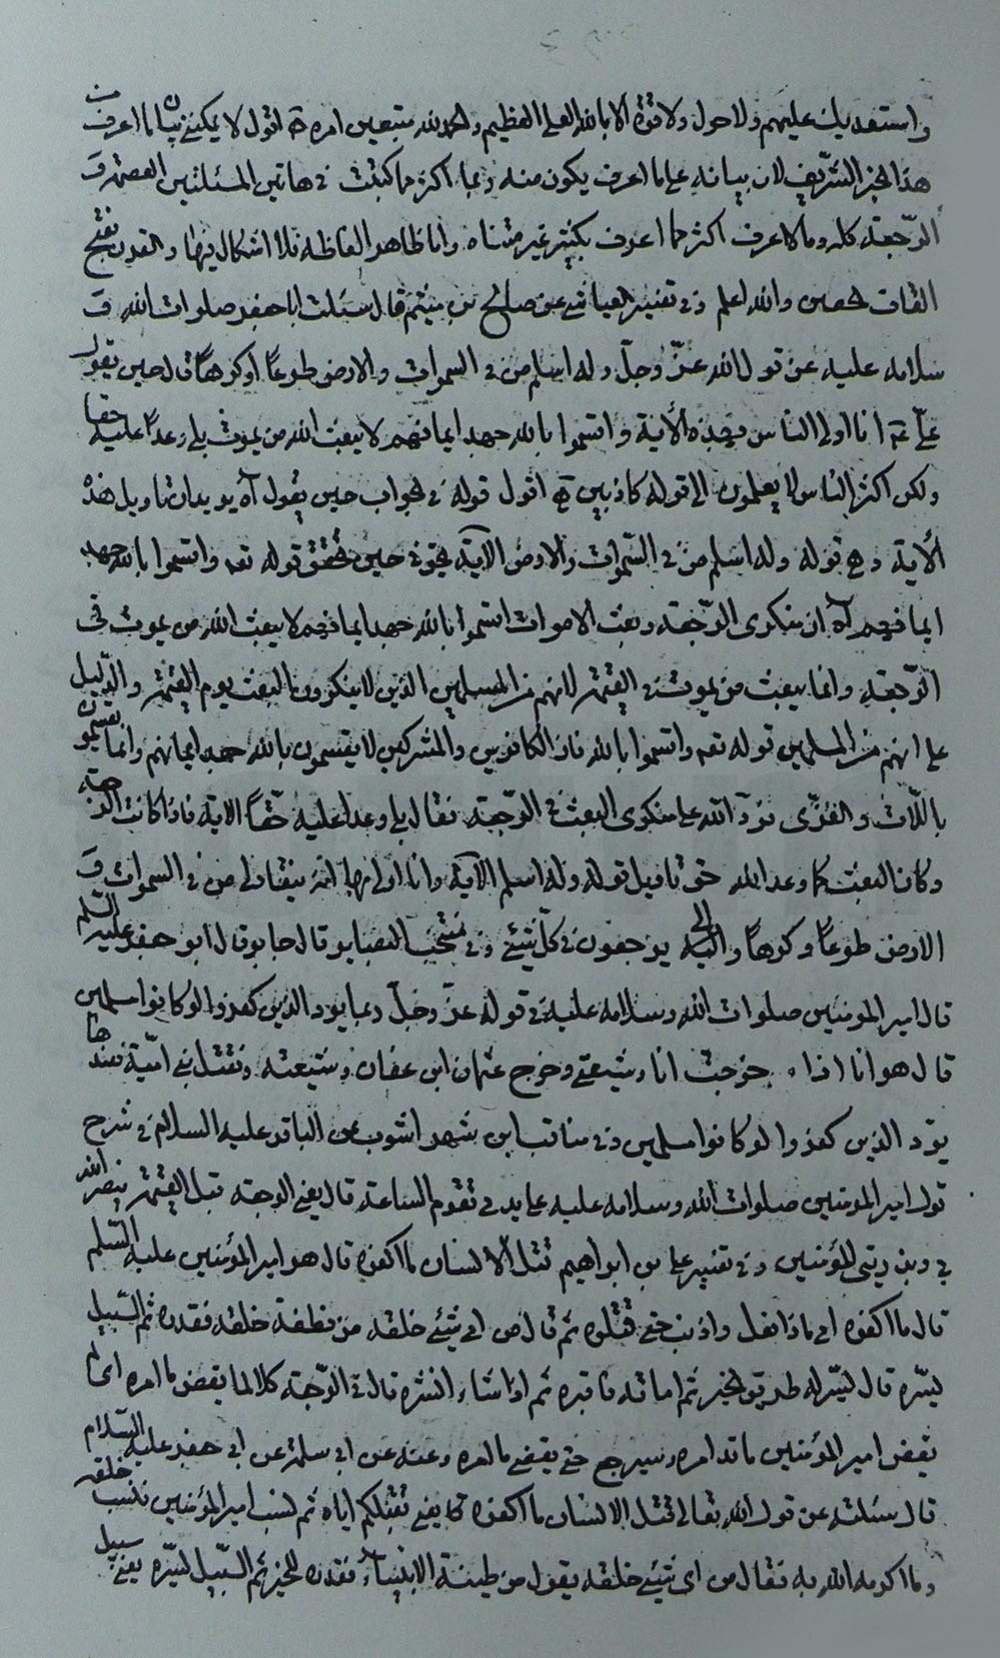 واستعديك عليهم ولا حول ولا قوة الا بالله العلي العظيم والحمد لله امره اقول لا يمكنني بيان ما اعرف من
هذا الخبر الشريف لان بيانه على ما اعرف يكون منه وبما اكثر ما كتبت في هاتين المسئلتين العصمة و
الرجعة كله وما لا اعرف اكثر مما اعرف بكثير غير متناه واما ظاهر الفاظه فلا اشكال فيها والقرن بفتح
القاف الحصن والله اعلم وفي تفسير العياشي عن صالح بن ميثم قال سئلت ابا جعفر صلوات الله و
سلامه عليه عن قول الله عز وجل وله اسلم من في السموات والارض طوعا وكرها قال حين يقول
علي ع انا اولى الناس بهذه الآية واقسموا بالله جهد ايمانهم لا يبعث الله من يموت بلى وعدا عليه حقا
ولكن اكثر الناس لا يعلمون الى قوله كاذبين اقول قوله في الجواب حين يقول آه يريد ان تاويل هذه
الآية وهي قوله وله اسلم من في السموات والارض الآية يجري حين تحقق قوله تعه واقسموا بالله جهد
ايمانهم آه ان منكري الرجعة وبعث الاموات اقسموا بالله جهد ايمانهم لا يبعث الله من يموت في
الرجعة وانما يبعث من يموت في القيمة لانهم من المسلمين الذين لا ينكرون البعث يوم القيمة والدليل
على انهم من المسلمين قوله تعه واقسموا بالله فان الكافرين والمشركين لا يقسمون بالله جهد ايمانهم وانما يقسمون
باللات والعزى فرد الله على منكري البعث في الرجعة فقال بلى وعدا عليه حقا الآية فاذا كانت الرجعة
وكان البعث كما وعد الله حق تاويل قوله وله اسلم الآية وانا اولى بها انه ينقاد لي من في السموات و
الارض طوعا وكرها واليه الي يرجعون في كل شيء وفي منتخب البصاير قال جابر قال ابو جعفر عليه السلم
قال امير المومنين صلوات الله وسلامه عليه في قوله عز وجل ربما يود الذين كفروا لو كانوا مسلمين
قال هو انا اذا خرجت انا وشيعتي وخرج عثمان ابن عفان وشيعته ونقتل بني امية فعندها
يود الذين كفروا لو كانوا مسلمين وفي مناقب ابن شهر اشوب عن الباقر عليه السلام في شرح
قول امير المومنين صلوات الله وسلامه عليه على يدي تقوم الساعة قال يعني الرجعة قبل القيمة ينصر الله
بي وبذريتي المؤمنين وفي تفسير علي بن ابراهيم قتل الانسان ما اكفره قال هو امير المؤمنين عليه السلم
قال ما اكفره اي ماذا فعل واذنب حتى قتلوه ثم قال من اي شيء خلقه من نطفة خلقه فقدره ثم السبيل
يسره قال يسر له طريق الخير ثم اماته فاقبره ثم اذا شاء انشره قال في الرجعة كلا لما يقض ما امره اي لم
يقض امير المؤمنين ما قد امره وسيرجع حتى يقضي ما امره وعنه عن ابي سلمة عن ابي جعفر عليه السلام
قال سئلته عن قول الله تعالى قتل الانسان ما اكفره قال يعني بقتلكم اياه ثم نسب امير المؤمنين فنسب خلقه
وما اكرمه الله به فقال من اي شيء خلقه يقول من طينة الانبياء فقدره للخير ثم السبيل يسره يعني سبيل